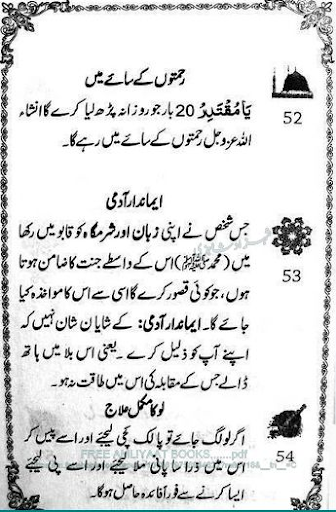 رحمتوں کے سائے میں
یَا مُقْتَدِرُ 20 بار جو روزانہ پڑھ لیا کرے گا انشاء
اللہ عزوجل رحمتوں کے سائے میں رہے گا۔
52
ایماندار آدمی
جس شخص نے اپنی زبان اور شرمگاہ کو قابو میں رکھا
میں (محمد ﷺ) اس کے واسطے جنت کا ضامن ہوتا
ہوں، جو کوئی قصور کرے گا اسی سے اس کا مواخذہ کیا
53
جائے گا۔ ایماندار آدمی: کے شایان شان نہیں کہ
اپنے آپ کو ذلیل کرے ۔ یعنی اس بلا میں ہاتھ
ڈالے جس کے مقابلہ کی اس میں طاقت نہ ہو۔
لو کا مکمل علاج
اگر لو لگ جائے تو پالک کچی لیجئے اور اسے پیس کر
FREE AMLIYAAT BOOKS.......pdf
اس میں ذرا سا پانی ملا لیجئے اور اسے پی لیجئے
54
ایسا کرنے سے فوراً فائدہ حاصل ہوگا۔